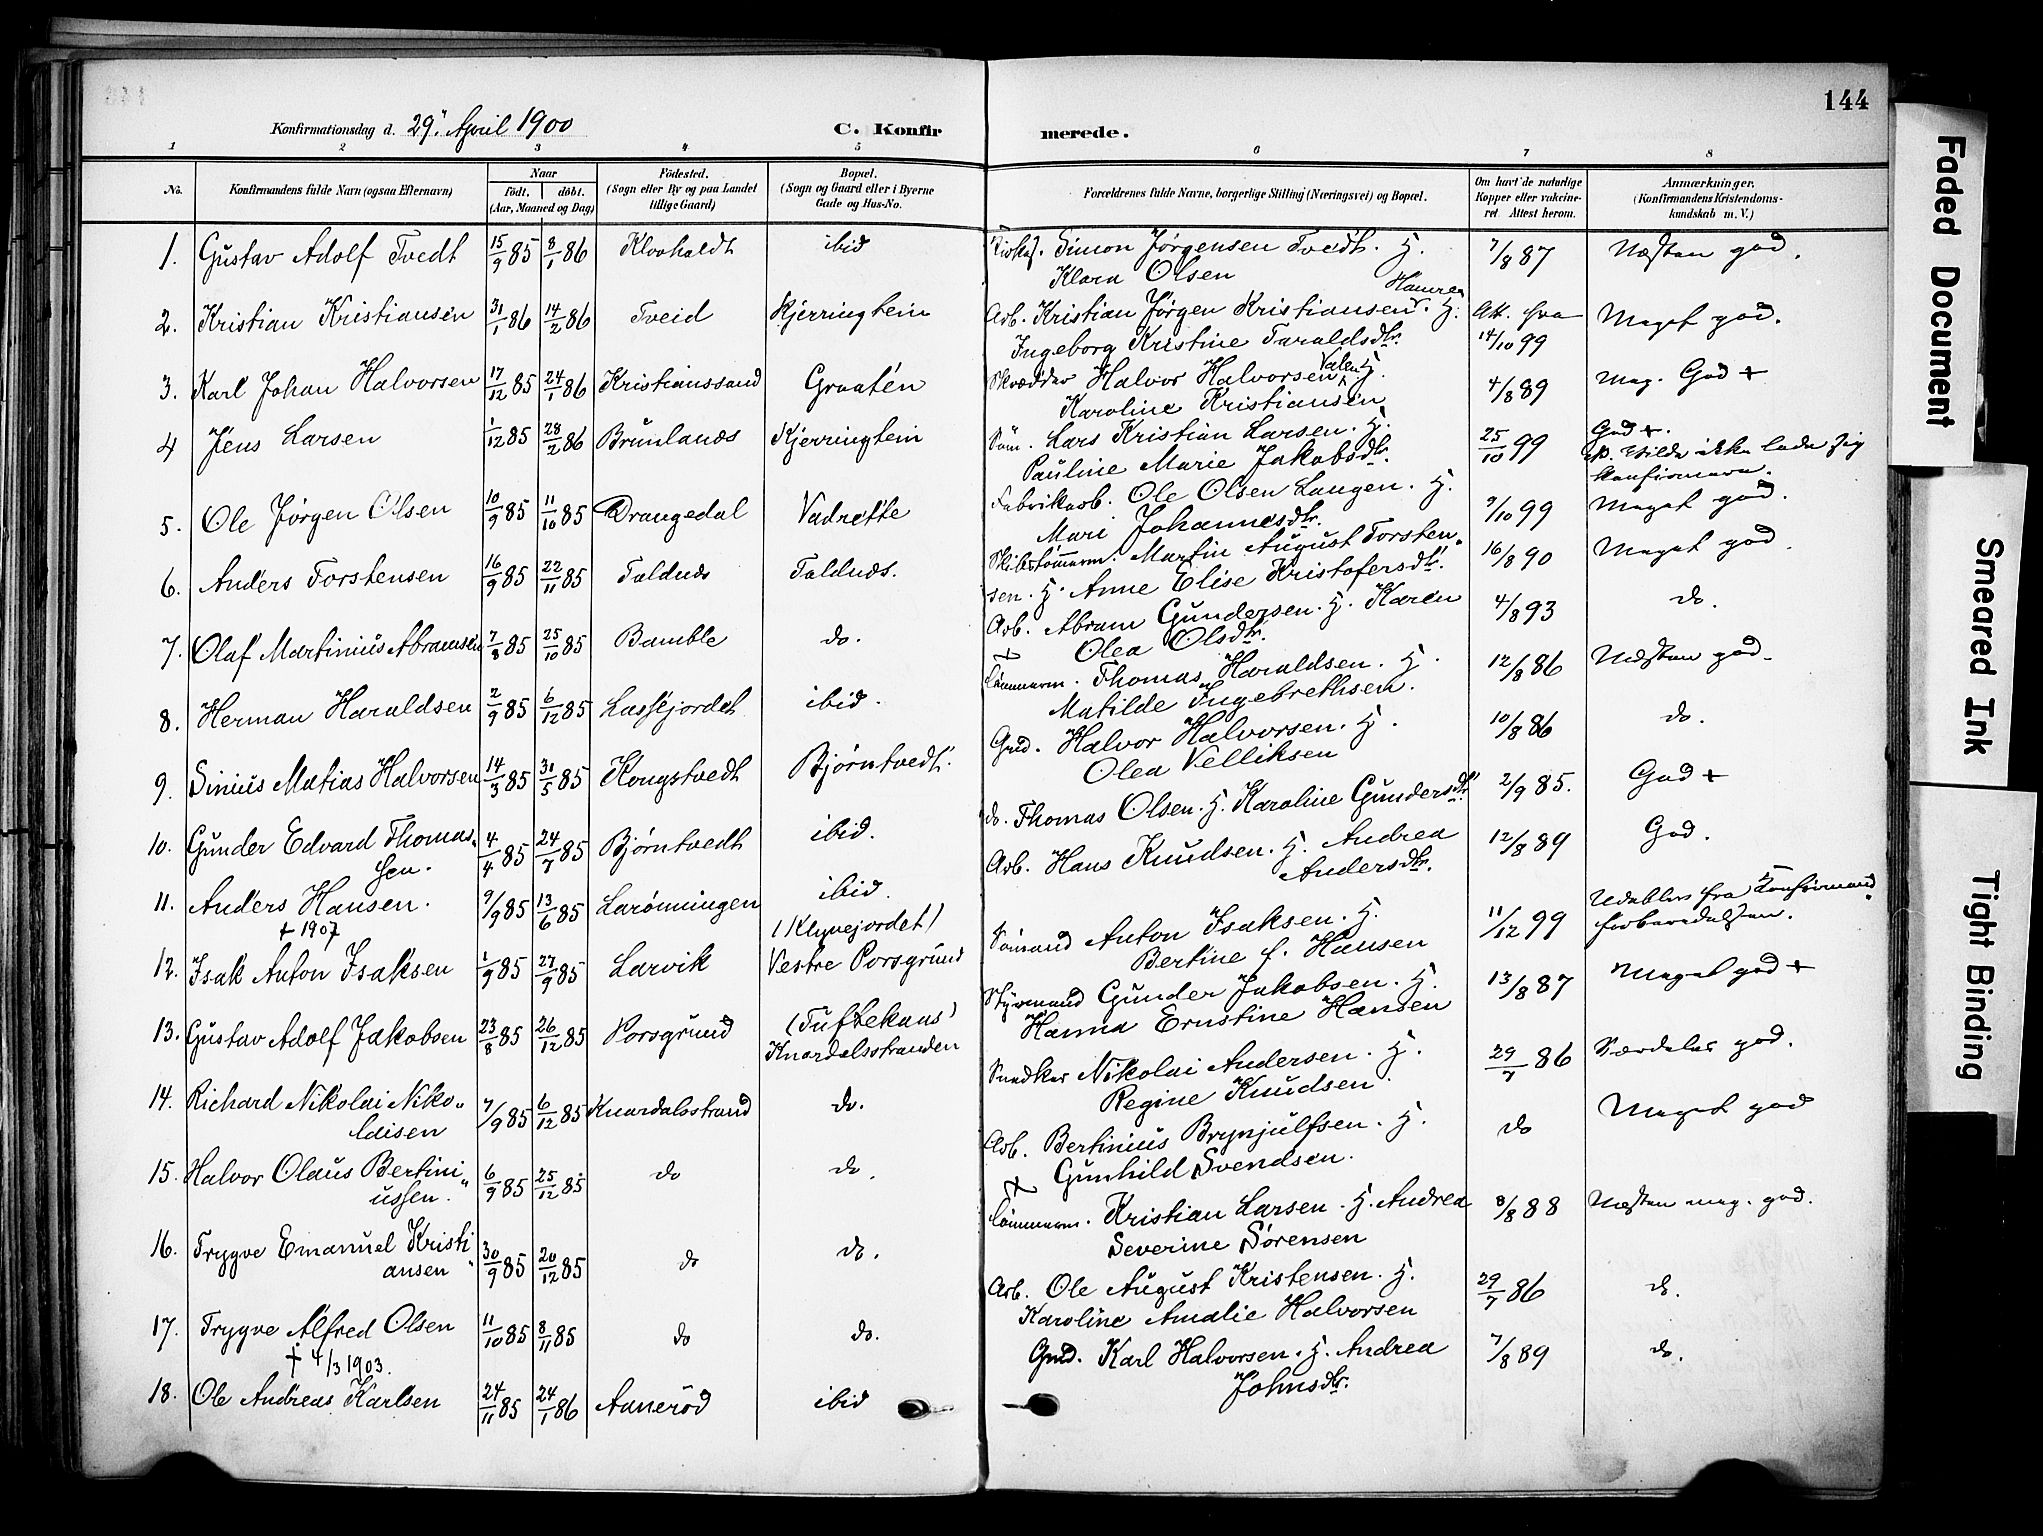 144
Konfirmationsdag d. 29. April 1900
C. Konfirmerede.
1 2 3 4 5 6 7 8
No.
Konfirmandens fulde Navn (ogsaa Efternavn)
Naar
født. døbt.
(Aar, Maaned og Dag)
Fødested.
(Sogn eller By og paa Landet
tillige Gaard)
Bopæl.
(Sogn og Gaard eller i Byerne
Gade og Hus-No.
Forældrenes fulde Navne, borgerlige Stilling (Næringsvei) og Bopæl.
Om havt de naturlige
Kopper eller vakcine-
ret. Attest herom.
Anmærkninger.
(Konfirmandens Kristendoms-
kundskab m. V.)
1. Gustav Adolf Tvedt 15/9 85 8/1 86 Klovholdt ibid Simon Jørgensen Tvedt. H. 7/8 87 Næsten god.
Klara Olsen
2. Kristian Kristiansen 31/1 86 14/2 86 Tveid Kjerringtein Arb. Kristian Jørgen Kristiansen Hamren. H. Att. fra 14/10 99 Meget god.
Ingeborg Kristine Taraldsdtr.
3. Karl Johan Halvorsen 17/12 85 24/1 86 Kristianssand Graatén Skrædder Halvor Halvorsen Valen H. 4/8 89 Meg. God +
Karoline Kristiansen
4 Jens Larsen 1/12 85 28/2 86 Brunlanes Kjerringtein Søm. Lars Kristian Larsen. H. 25/10 99 God +.
Pauline Marie Jakobsdtr. Vilde ikke lade sig
konfirmere.
5. Ole Jørgen Olsen 10/9 85 11/10 85 Drangedal Vadrette Fabrikarb. Ole Olsen Langen. H. 9/10 99 Meget god.
Mari Johannesdtr.
6. Anders Torstensen 16/9 85 22/11 85 Foldnes Foldnes. Skibstømmerm. Martin August Torsten- 16/8 90 Meget god.
sen. H. Anne Elise Kristofersdtr.
7. Olaf Martinius Abramsen 7/8 85 25/10 85 Bamble do. Arb. Abram Gundersen. H. Karen 4/8 93 do.
Olea Olsdtr.
8. Herman Haraldsen 2/9 85 6/12 85 Lassejordet ibid. Tømmerm. Thomas Haraldsen. H. 12/8 86 Næsten god.
Matilde Ingebrethsen.
9. Sinius Matias Halvorsen 14/3 85 31/5 85 Kongstvedt Bjørntvedt. Grd. Halvor Halvorsen. H. 10/8 86 do.
Olea Velliksen
10. Gunder Edvard Thomas- 4/4 85 24/7 85 Bjørntvedt ibid. do. Thomas Olsen. H. Karoline Gundersdtr. 2/9 85. God +
sen.
11. Anders Hansen. 9/9 85 13/6 85 Larønningen ibid. Arb. Hans Knudsen. H. Andrea 12/8 89 God.
+ 1907 Andersdtr.
12. Isak Anton Isaksen 1/9 85 27/9 85 Larvik (Klyvejordet) Sømand Anton Isaksen. H. 11/12 99 Udeblev fra Konfirmand
Vestre Porsgrund Bertine f. Hansen forberedelsen.
13. Gustav Adolf Jakobsen 23/8 85 26/12 85 Porsgrund (Tuftekaas) Styrmand Gunder Jakobsen. H. 13/8 87 Meget god +
Knardalsstranden Hanna Ernstine Hansen
14. Richard Nikolai Niko- 7/9 85 6/12 85 Knardalsstrand do. Snedker Nikolai Andersen. H. 29/7 86 Særdeles god.
laisen Regine Knudsen.
15. Halvor Olaus Bertini- 6/9 85 25/12 85 do do. Arb. Bertinius Brynjulfsen. H. do Meget god
ussen. Gunhild Svendsen.
16. Trygve Emanuel Kristi- 30/9 85 20/12 85 do do. Tømmerm. Kristian Larsen. H. Andrea 8/8 88 Næsten meg. god.
ansen Severine Sørensen
17. Trygve Alfred Olsen 11/10 85 8/11 85 do do. Arb. Ole August Kristensen. H. 29/7 86 do.
† 4/3 1903. Karoline Amalie Halvorsen
18. Ole Andreas Karlsen 24/11 85 24/1 86 Aanerød ibid Grd. Karl Halvorsen. H. Andrea 7/8 89 do.
Johnsdtr.
Faded Document
Smeared Ink
Tight Binding